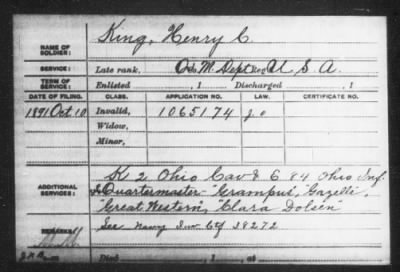 King, Henry C.
NAME OF SOLDIER:
SERVICE: Late rank, Q. M. Dept Reg U S A.
TERM OF SERVICE: Enlisted , 1 Discharged , 1
DATE OF FILING. CLASS. APPLICATION NO. LAW. CERTIFICATE NO.
1891 Oct 10 Invalid, 1065174
Widow,
Minor,
K 2 Ohio Cav & G 84 Ohio Inf
ADDITIONAL SERVICES: & Quartermaster "Grampus," "Gazelle,"
"Great Western," "Clara Dolsen"
REMARKS: See Navy Inv 38272
Died , 1